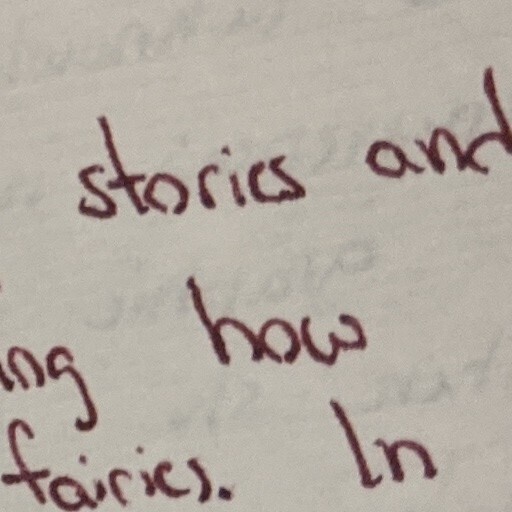 stories and
ing how
fairies. In